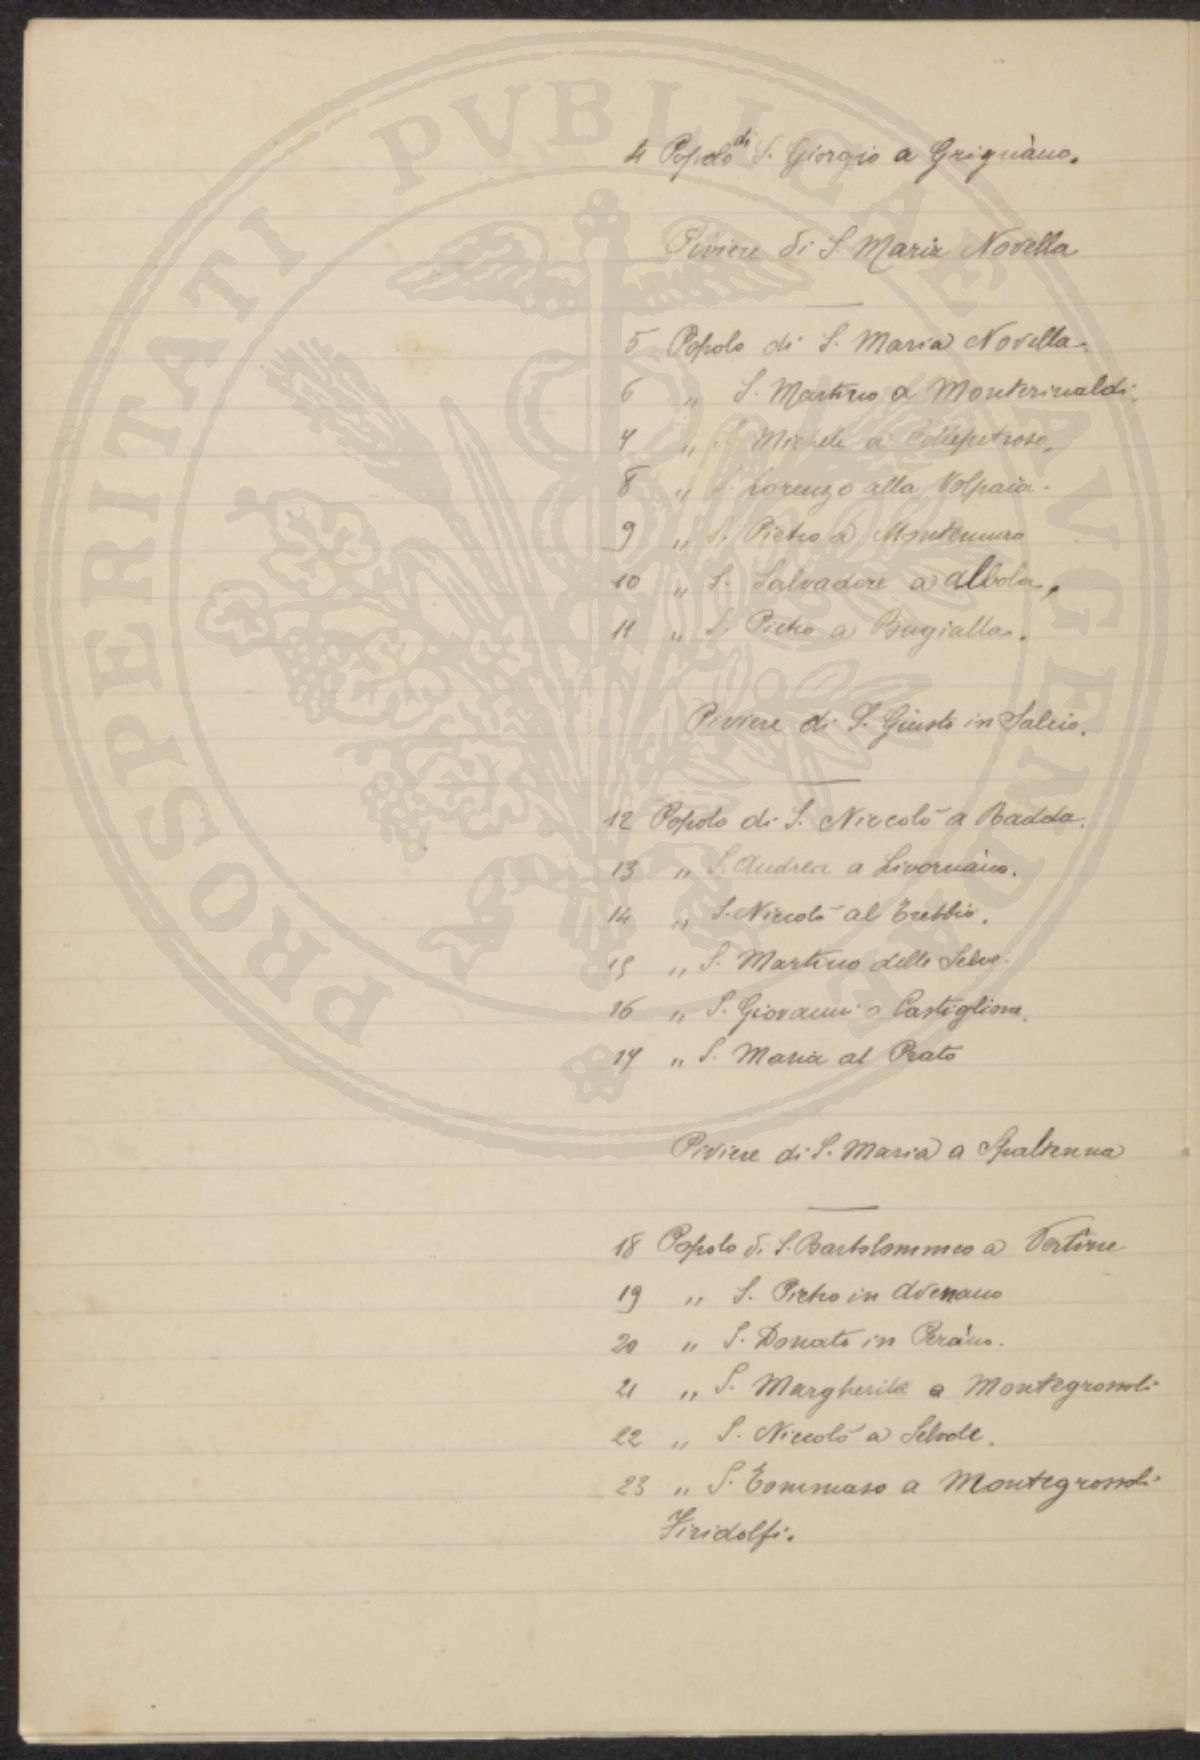 4 Popolo di S. Giorgio a Grignàno.
Piviere di S. Maria Novella
5 Popolo di S. Maria Novella.
6 " S. Martino a Monterinaldi.
7 " S. Michele a Collepetroso.
8 " S. Lorenzo alla Volpaia.
9 " S. Pietro a Montemuro
10 " S. Salvadore a Albola.
11 " S. Pietro a Bugialla.
Piviere di S. Giusto in Salcio.
12 Popolo di S. Niccolò a Radda.
13 " S. Andrea a Livornàno.
14 " S. Niccolò al Trebbio.
15 " S. Martino delle Selve.
16 " S. Giovanni a Castiglione.
17 " S. Maria al Prato
Piviere di S. Maria a Spaltenna
18 Popolo di S. Bartolommeo a Vertine
19 " S. Pietro in Avenano
20 " S. Donato in Peràno.
21 " S. Margherita a Montegrossoli
22 " S. Niccolò a Selvole.
23 " S. Tommaso a Montegrossoli
Firidolfi.
PROSPERITATI PVBLICAE AVGENDAE